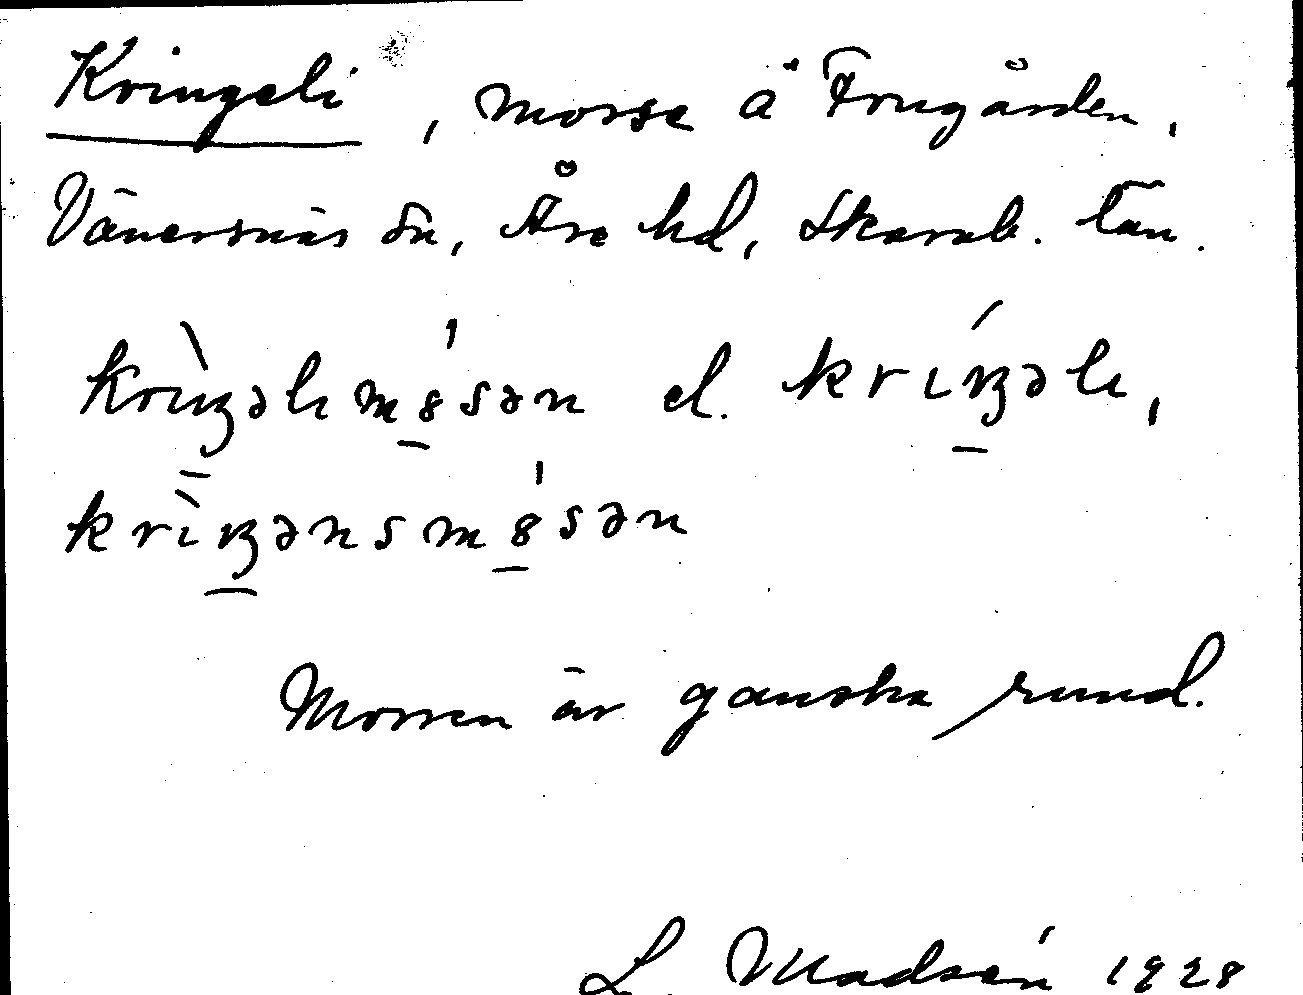 Kringeli, mosse å Frugården,
Vänersnäs sn, Åse hd, Skarab. län.
krìŋəlimósən el. kríŋəli,
krìŋənsmósən
Mossen är ganska rund.
L. Madsén 1928